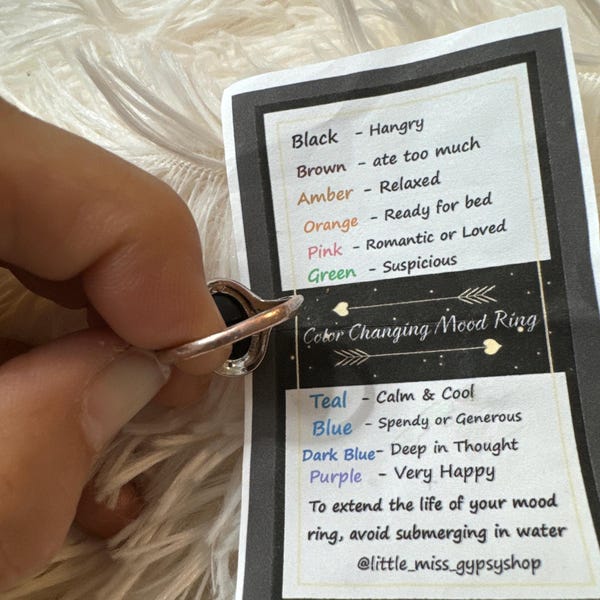 Black - Hangry
Brown - ate too much
Amber - Relaxed
Orange - Ready for bed
Pink - Romantic or Loved
Green - Suspicious
Color Changing Mood Ring
Teal - Calm & Cool
Blue - Spendy or Generous
Dark Blue- Deep in Thought
Purple - Very Happy
To extend the life of your mood
ring, avoid submerging in water
@little_miss_gypsyshop